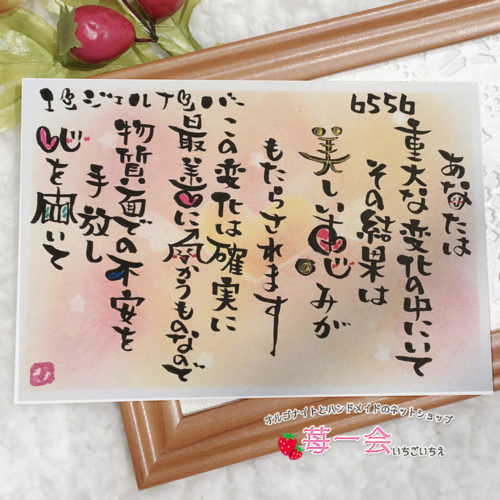 エンジェルナンバー
6556
あなたは
重大な変化の中にいて
その結果は
美しい恵みが
もたらされます
この変化は確実に
最善に向かうものなので
物質面での不安を
手放し
心を開いて
オルゴナイトとハンドメイドのネットショップ
苺一会
いちごいちえ